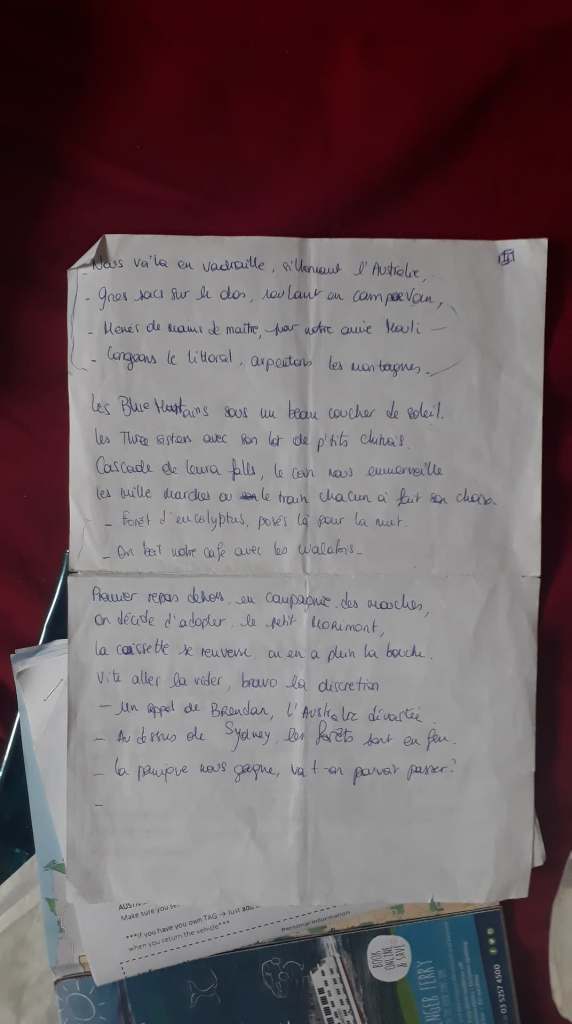 Nous voilà en vadrouille, sillonnant l'Australie,
- Gros sacs sur le dos, roulant en campervan,
- Menés de mains de maître, par notre amie
- Longeons le littoral, arpentons les montagnes.
Les Blue Mountains sous un beau coucher de soleil.
les Three sisters avec son lot de p'tits chinois.
Cascade de Leura falls, le coin nous emmerveille
les mille marches ou le train chacun à fait son choix.
- Forêt d'eucalyptus, posés là pour la nuit.
- On boit notre café avec les
Premier repas dehors, en compagnie des mouches,
on décide d'adopter, le petit
la caissette se renverse, on en a plein la bouche.
Vite aller la vider, bravo la discretion
- Un appel de Brendan, l'Australie dévastée.
- Au dessus de Sydney, les forêts sont en feu.
- la panique nous gagne, va t-on pouvoir passer?
-
Make sure you
***If you have you own TAG → Just add
when you return the vehicle***
Personal information
BOOK ONLINE & SAVE
NGER FERRY
03 5257 4500